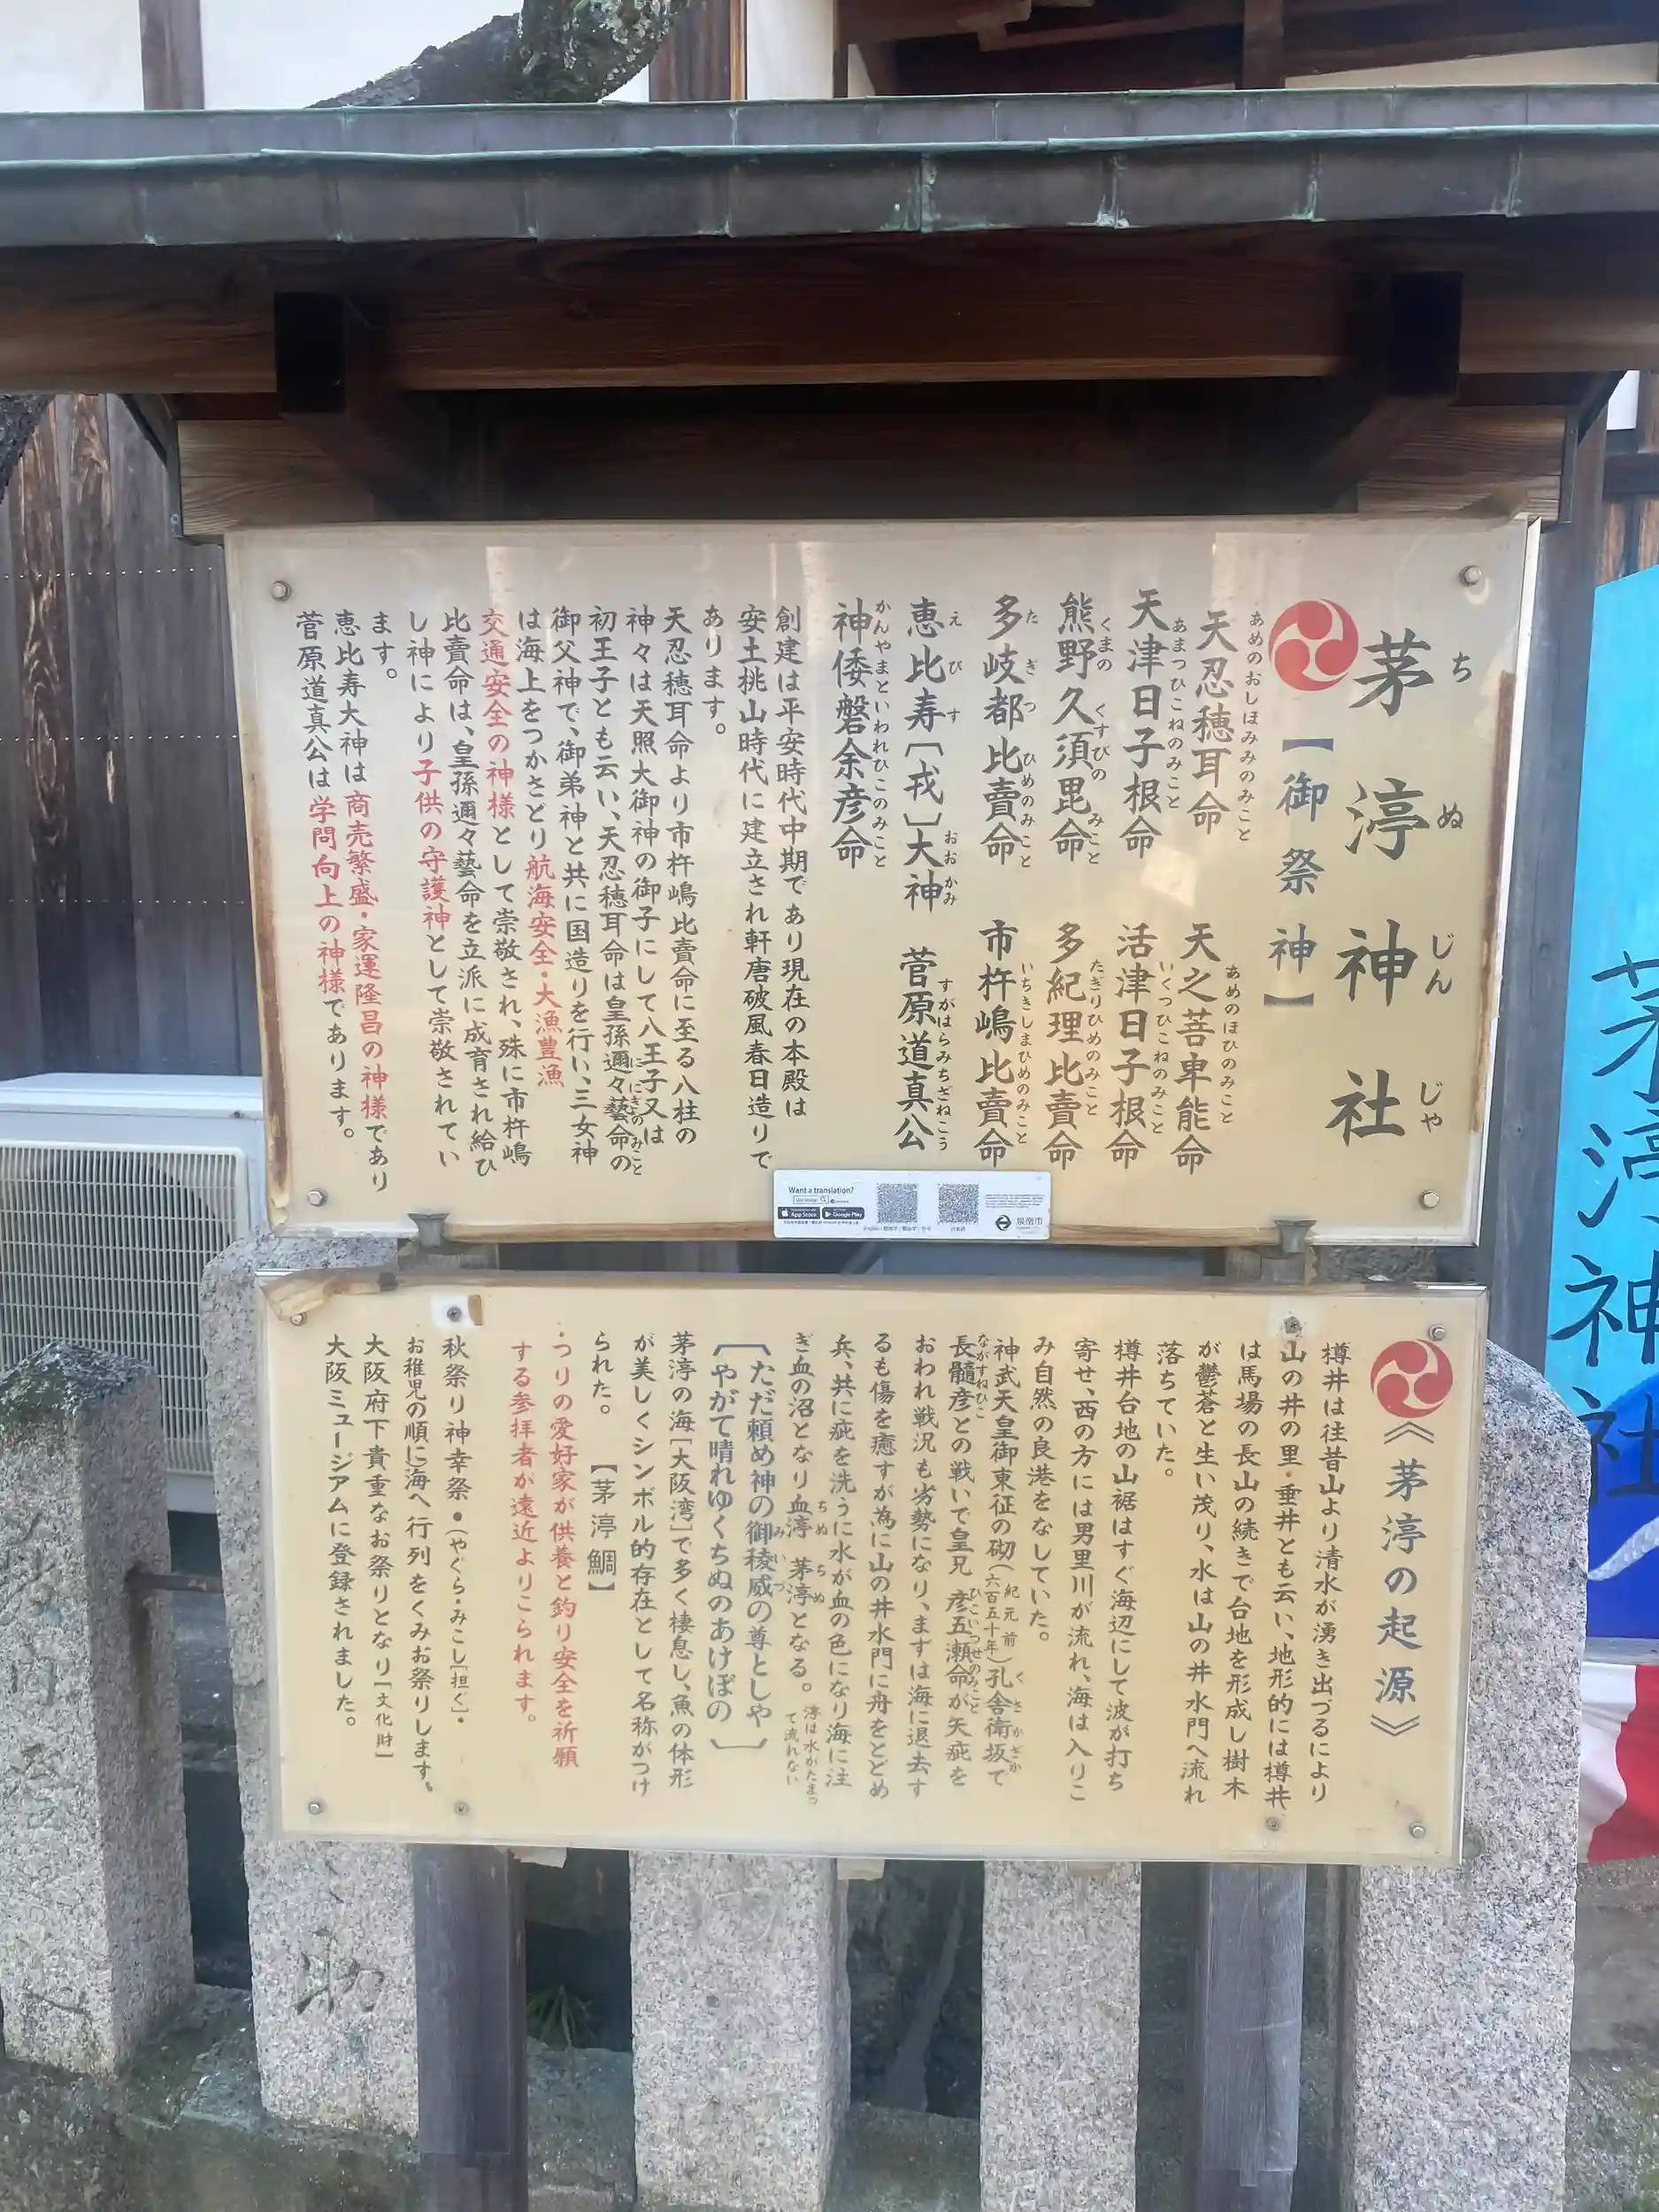 茅渟神社
ちぬじんじゃ
【御祭神】
天忍穂耳命 天之菩卑能命
あめのおしほみみのみこと あめのほひのみこと
天津日子根命 活津日子根命
あまつひこねのみこと いくつひこねのみこと
熊野久須毘命 多紀理比賣命
くまのくすびのみこと たぎりひめのみこと
多岐都比賣命 市杵嶋比賣命
たぎつひめのみこと いちきしまひめのみこと
恵比寿〔戎〕大神 菅原道真公
えびすおおかみ すがはらみちざねこう
神倭磐余彦命
かんやまといわれひこのみこと
創建は平安時代中期であり現在の本殿は
安土桃山時代に建立され軒唐破風春日造りで
あります。
天忍穂耳命より市杵嶋比賣命に至る八柱の
神々は天照大御神の御子にして八王子又は
初王子とも云い、天忍穂耳命は皇孫邇々藝命の
ににぎのみこと
御父神で、御弟神と共に国造りを行い、三女神
は海上をつかさどり航海安全・大漁豊漁
交通安全の神様として崇敬され、殊に市杵嶋
比賣命は、皇孫邇々藝命を立派に成育され給ひ
し神により子供の守護神として崇敬されてい
ます。
恵比寿大神は商売繁盛・家運隆昌の神様であり
菅原道真公は学問向上の神様であります。
Want a translation?
App Store
Google Play
日本語
泉南市
《茅渟の起源》
樽井は往昔山より清水が湧き出づるにより
山の井の里・垂井とも云い、地形的には樽井
は馬場の長山の続きで台地を形成し樹木
が鬱蒼と生い茂り、水は山の井水門へ流れ
落ちていた。
樽井台地の山裾はすぐ海辺にして波が打ち
寄せ、西の方には男里川が流れ、海は入りこ
み自然の良港をなしていた。
神武天皇御東征の砌(紀元前六百五十年)孔舎衛坂で
くさかざか
長髓彦との戦いで皇兄 彦五瀬命が矢疵を
ながすねひこ ひこいつせのみこと
おわれ戦況も劣勢になり、まずは海に退去す
るも傷を癒すが為に山の井水門に舟をとどめ
兵、共に疵を洗うに水が血の色になり海に注
ぎ血の沼となり血渟 茅渟となる。渟は水がたまって流れない
ちぬ ちぬ
〔ただ頼め神の御稜威の尊としや
みいづ
やがて晴れゆくちぬのあけぼの〕
茅渟の海[大阪湾]で多く棲息し、魚の体形
が美しくシンボル的存在として名称がつけ
られた。
【茅渟鯛】
・つりの愛好家が供養と釣り安全を祈願
する参拝者が遠近よりこられます。
秋祭り神幸祭●(やぐら・みこし[担ぐ]・
お稚児の順に海へ行列をくみお祭りします。
大阪府下貴重なお祭りとなり[文化財]
大阪ミュージアムに登録されました。
茅渟神社